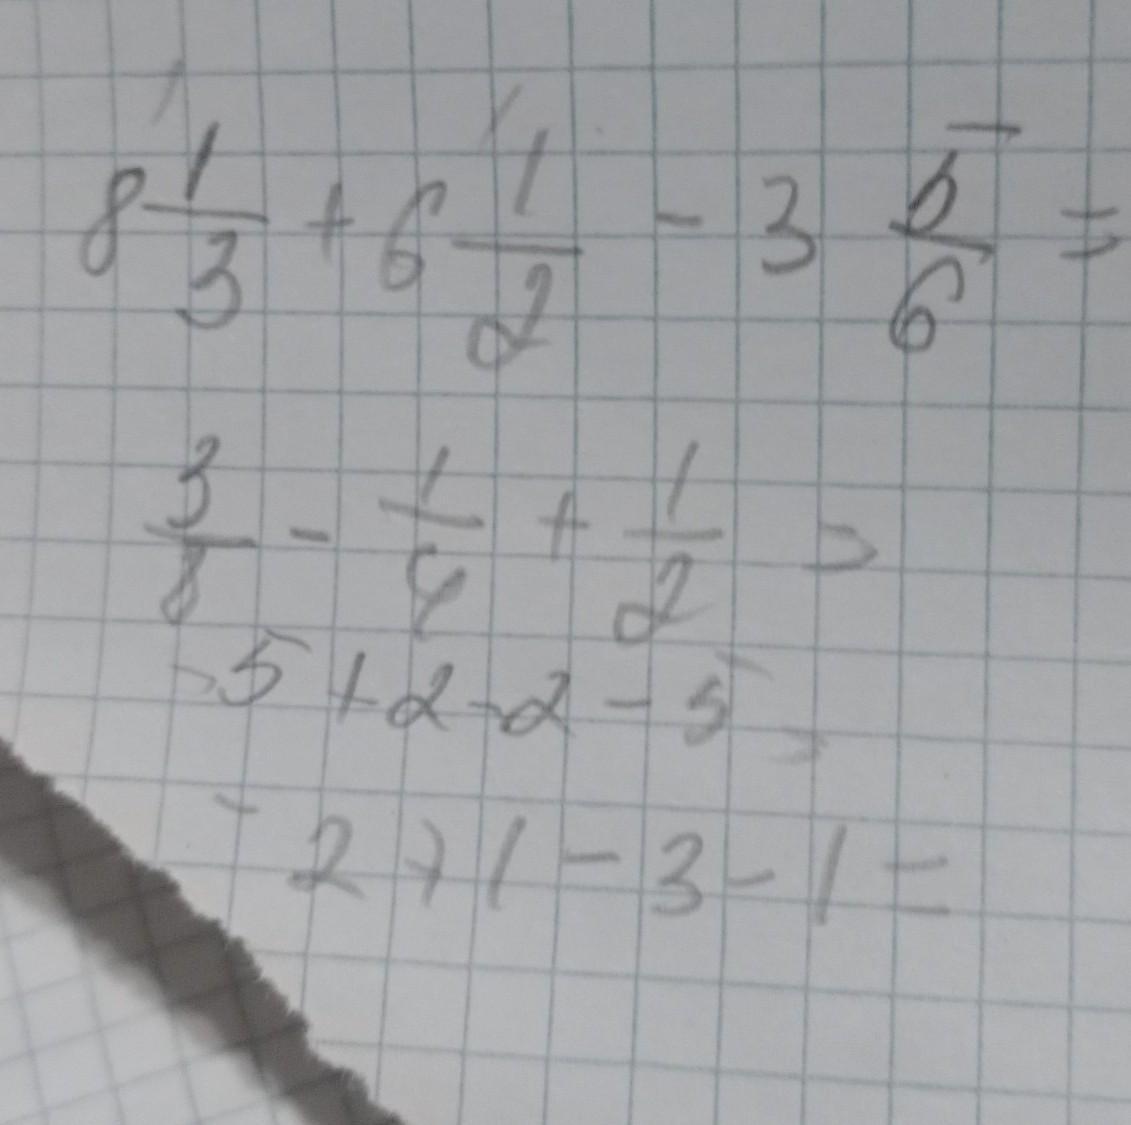 8 1/3 + 6 1/2 - 3 5/6 =
3/8 - 1/4 + 1/2 =
-5+2-2-5=
-2+1-3-1=